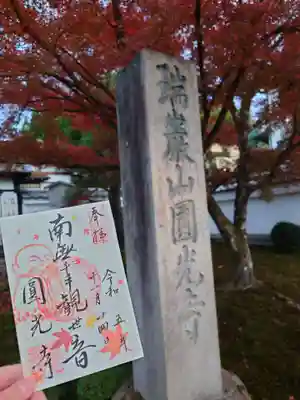 瑞巖山圓光寺
奉拝
令和五年
十一月廿四日
南無千手觀世音
圓光寺